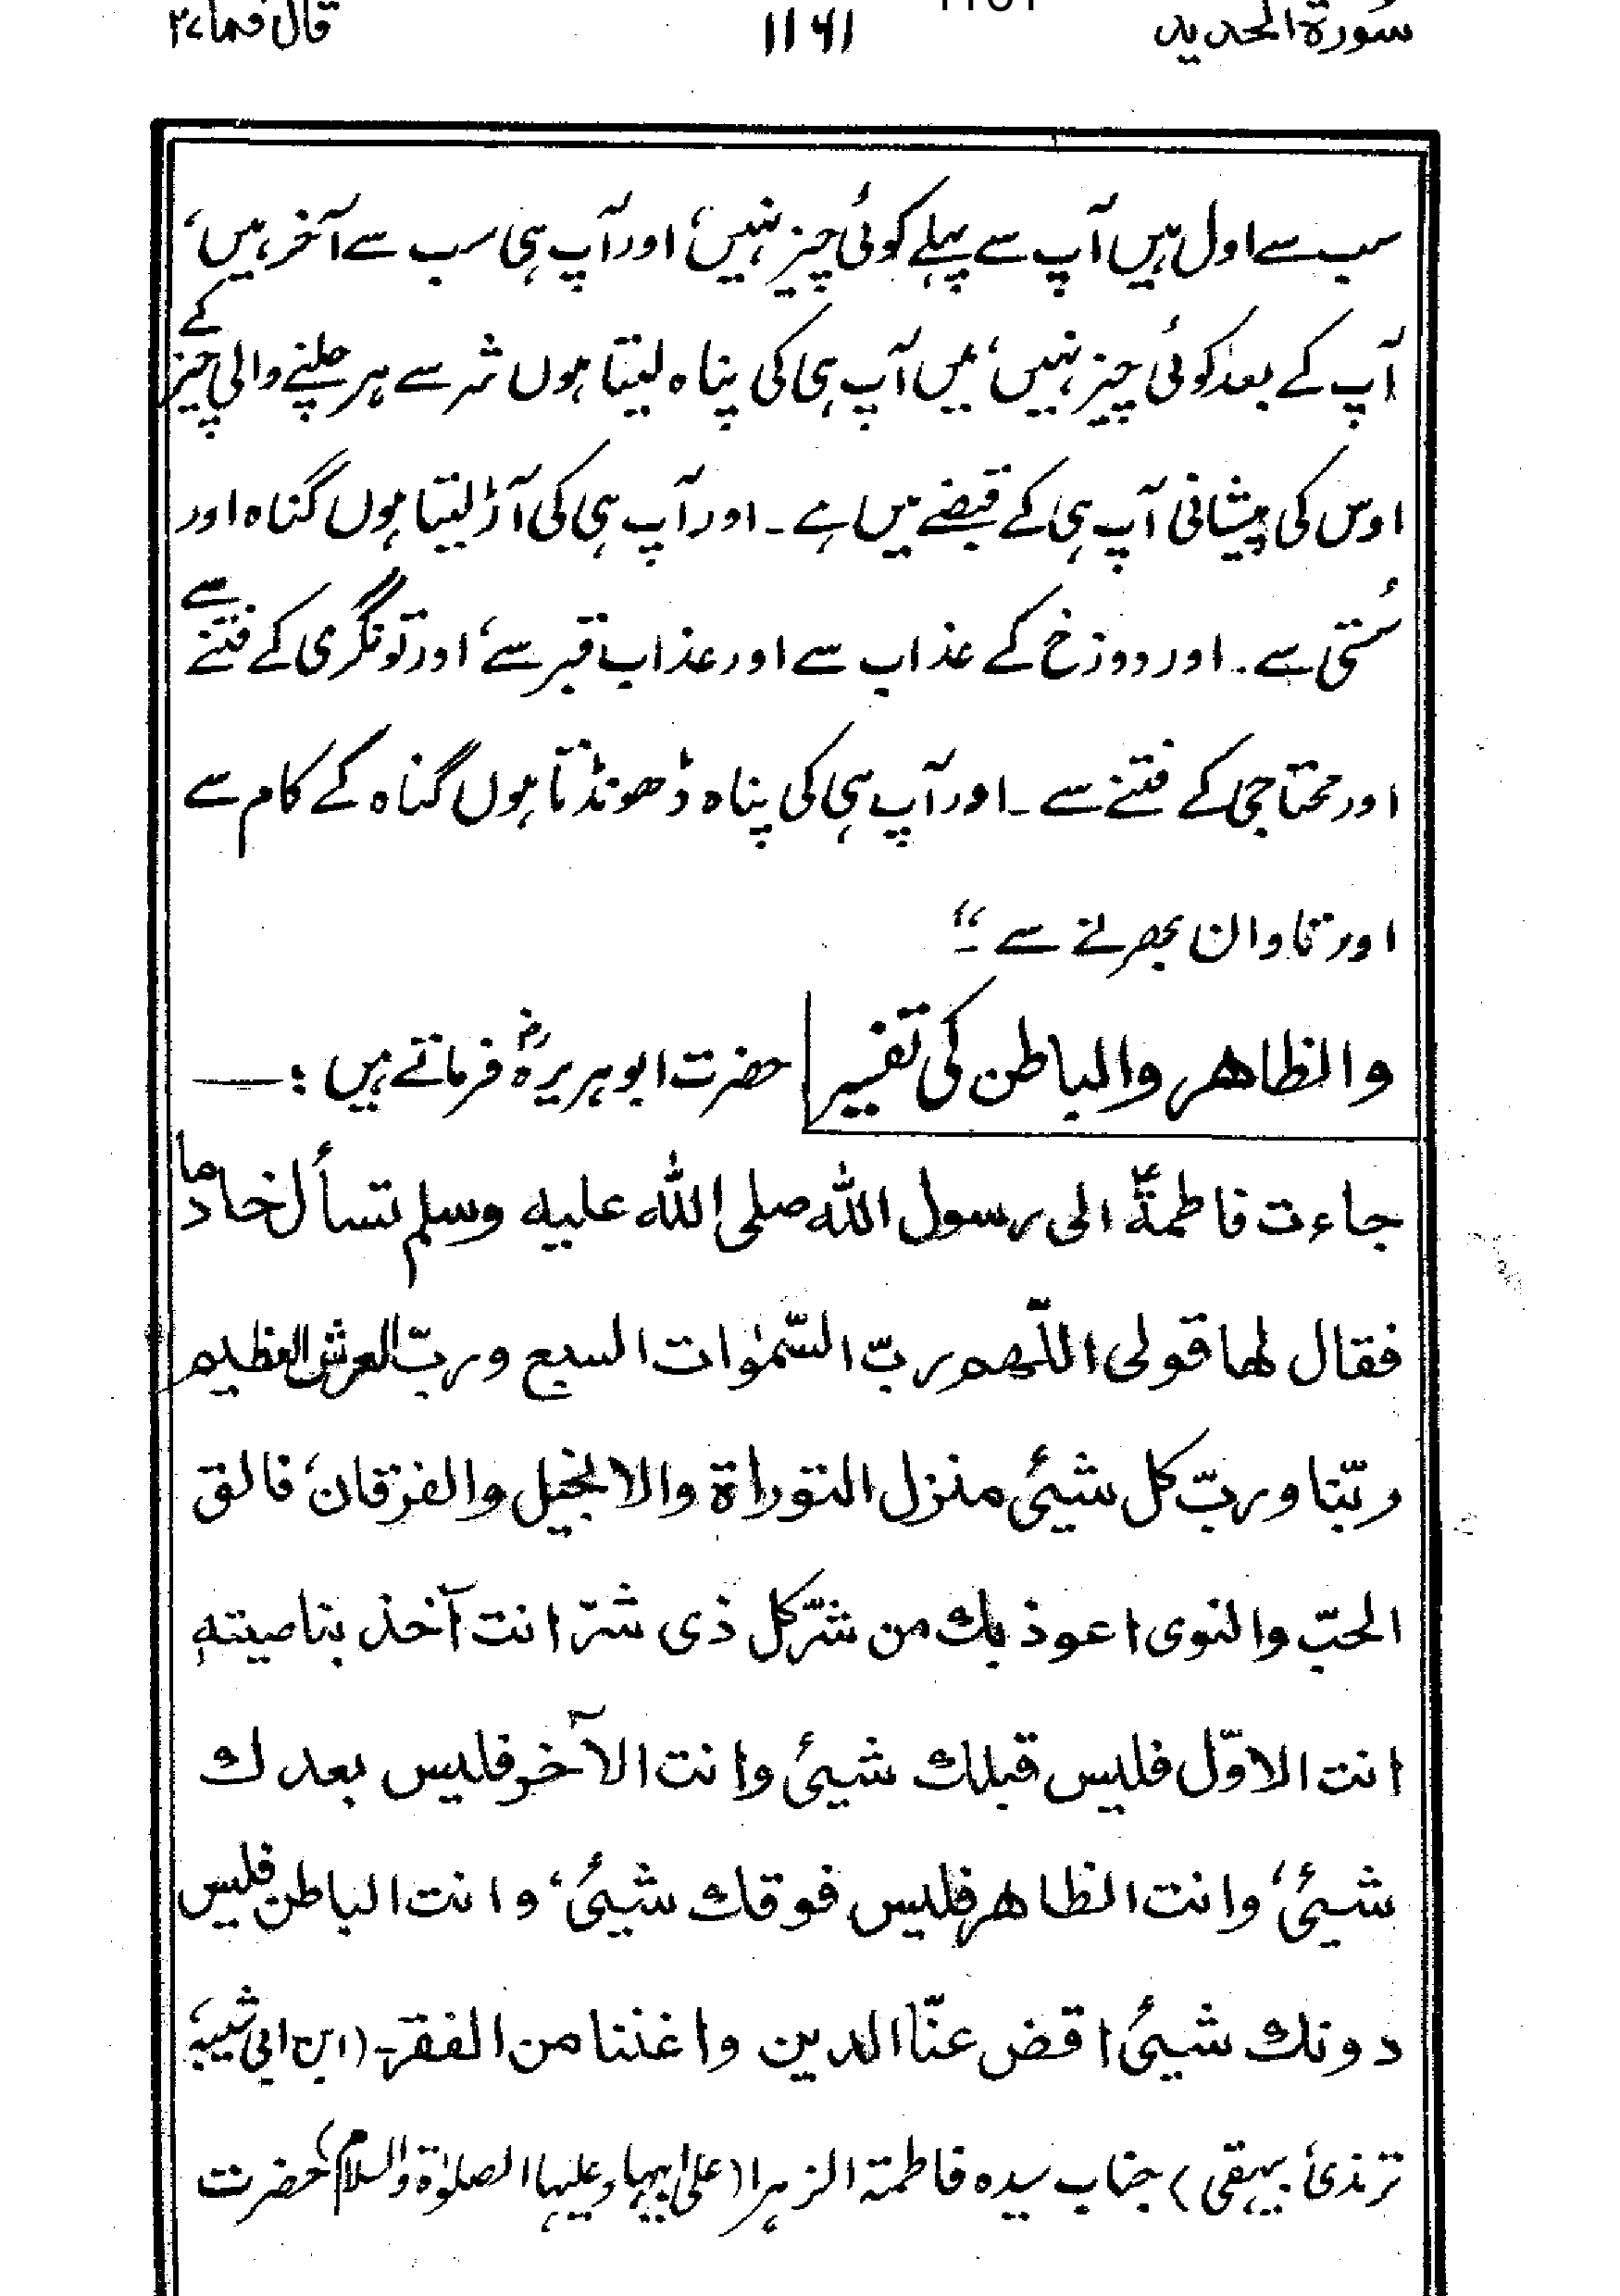 سورة الحدید ۱۱۶۱ قال فما ۲۷
سب سے اول ہیں آپ سے پہلے کوئی چیز نہیں، اور آپ ہی سب سے آخر ہیں،
آپ کے بعد کوئی چیز نہیں، میں آپ ہی کی پناہ لیتا ہوں شر سے ہر چلنے والی چیز کے
اوس کی پیشانی آپ ہی کے قبضے میں ہے۔ اور آپ ہی کی آڑ لیتا ہوں گناہ اور
سُستی سے۔ اور دوزخ کے عذاب سے اور عذاب قبر سے، اور تونگری کے فتنے سے
اور محتاجی کے فتنے سے۔ اور آپ ہی کی پناہ ڈھونڈتا ہوں گناہ کے کام سے
اور تاوان بھرنے سے۔“
والظاهر والباطن کی تفسیر حضرت ابوہریرہؓ فرماتے ہیں :—
جاءت فاطمةؓ الى رسول الله صلى الله عليه وسلم تسأل خادما
فقال لها قولى اللّهم ربّ السّمٰوات السبع وربّ العرش العظيم
ربّنا وربّ كل شيئ منزل التوراة والانجيل والفرقان، فالق
الحبّ والنوى اعوذ بك من شرّ كل ذى شرّ انت آخذ بناصيتهٖ
انت الاوّل فليس قبلك شيئ وانت الآخر فليس بعدك
شيئ، وانت الظاهر فليس فوقك شيئ، وانت الباطن فليس
دونك شيئ اقض عنّا الدين واغننا من الفقر۔ (ابن ابی شیبہ،
ترمذی، بیہقی) جناب سیدہ فاطمۃ الزہرا (علیٰ ابیہا وعلیہا الصلوٰۃ والسلام) حضرت